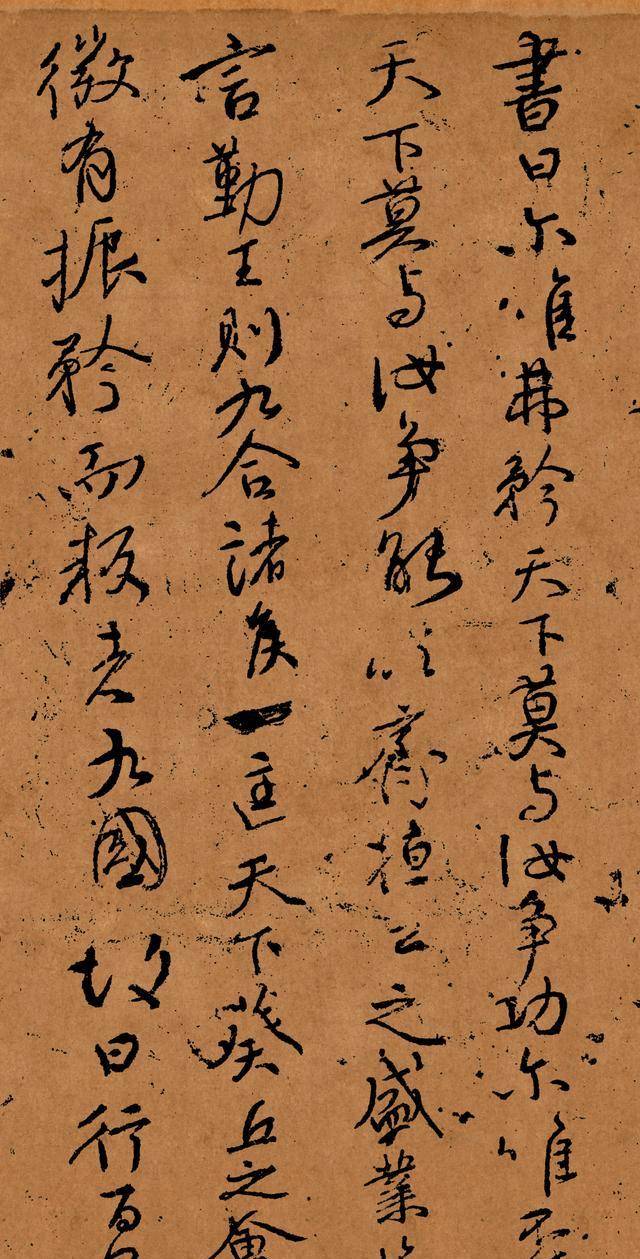 書曰尔唯弗矜天下莫与汝争功尔唯不
天下莫与汝争能以齊桓公之盛業
言勤王則九合諸侯一匡天下葵丘之會
微有振矜而叛者九國故曰行百里